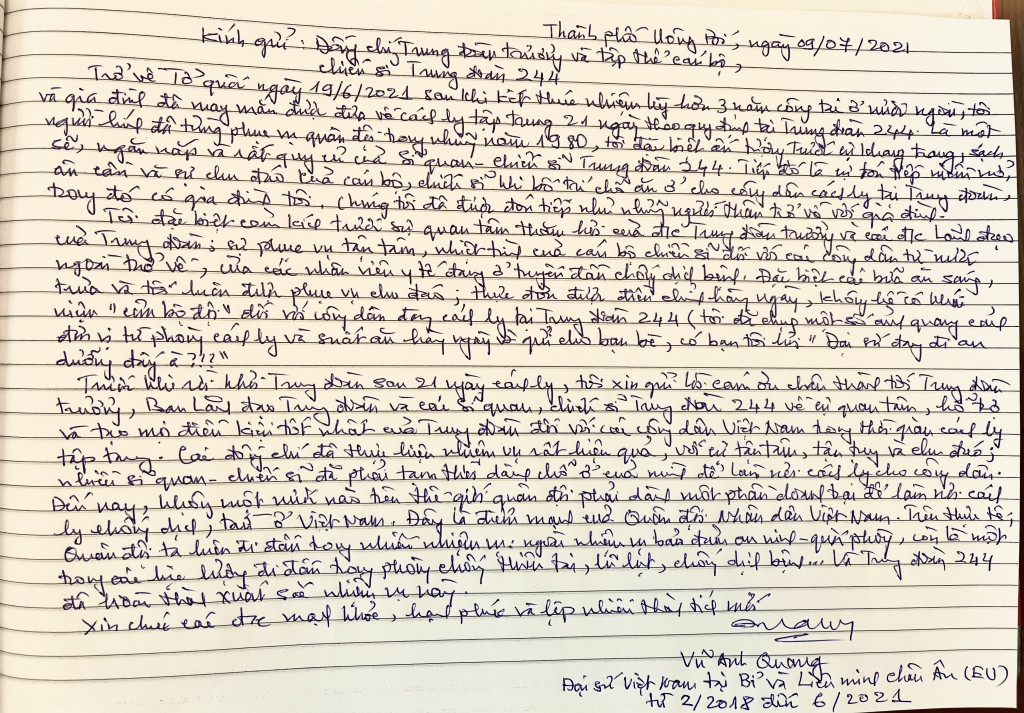 Thành phố Uông Bí, ngày 09/07/2021
Kính gửi: Đồng chí Trung đoàn trưởng và tập thể cán bộ,
chiến sĩ Trung đoàn 244
Trở về Tổ quốc ngày 19/6/2021 sau khi kết thúc nhiệm kỳ hơn 3 năm công tác ở nước ngoài, tôi
và gia đình đã may mắn được đưa về cách ly tập trung 21 ngày theo quy định tại Trung đoàn 244. Là một
người lính đã từng phục vụ quân đội trong những năm 1980, tôi đặc biệt ấn tượng trước sự khang trang, sạch
sẽ, ngăn nắp và rất quy củ của sĩ quan - chiến sĩ Trung đoàn 244. Tiếp đó là sự đón tiếp niềm nở,
ân cần và sự chu đáo của cán bộ, chiến sĩ khi bố trí chỗ ăn ở cho công dân cách ly tại Trung đoàn,
trong đó có gia đình tôi. Chúng tôi đã được đón tiếp như những người thân trở về với gia đình.
Tôi đặc biệt cảm kích trước sự quan tâm thăm hỏi của đ/c Trung đoàn trưởng và các đ/c Lãnh đạo
của Trung đoàn; sự phục vụ tận tâm, nhiệt tình của cán bộ chiến sĩ đối với các công dân từ nước
ngoài trở về, của các nhân viên y tế đang ở tuyến đầu chống dịch bệnh. Đặc biệt các bữa ăn sáng,
trưa và tối luôn được phục vụ chu đáo; thực đơn được điều chỉnh hàng ngày, không hề có khái
niệm "cơm bộ đội" đối với công dân đang cách ly tại Trung đoàn 244 (tôi đã chụp một số ảnh quang cảnh
đơn vị từ phòng cách ly và suất ăn hàng ngày và gửi cho bạn bè, có bạn tôi hỏi "Đại sứ đang đi an
dưỡng đấy à ???"
Trước khi rời khỏi Trung đoàn sau 21 ngày cách ly, tôi xin gửi lời cảm ơn chân thành tới Trung đoàn
trưởng, Ban Lãnh đạo Trung đoàn và các sĩ quan, chiến sĩ Trung đoàn 244 về sự quan tâm, hỗ trợ
và tạo mọi điều kiện tốt nhất của Trung đoàn đối với các công dân Việt Nam trong thời gian cách ly
tập trung. Các đồng chí đã thực hiện nhiệm vụ rất hiệu quả, với sự tận tâm, tận tụy và chu đáo;
nhiều sĩ quan - chiến sĩ đã phải tạm thời dành chỗ ở của mình để làm nơi cách ly cho công dân.
Đến nay, không một nước nào trên thế giới quân đội phải dành một phần doanh trại để làm nơi cách
ly chống dịch, trừ ở Việt Nam. Đây là điểm mạnh của Quân đội Nhân dân Việt Nam. Trên thực tế,
Quân đội ta luôn đi đầu trong nhiều nhiệm vụ: ngoài nhiệm vụ bảo đảm an ninh - quốc phòng, còn là một
trong các lực lượng đi đầu trong phòng chống thiên tai, lũ lụt, chống dịch bệnh... Và Trung đoàn 244
đã hoàn thành xuất sắc nhiệm vụ này.
Xin chúc các đ/c mạnh khỏe, hạnh phúc và lập nhiều thành tích mới
Vũ Anh Quang
Đại sứ Việt Nam tại Bỉ và Liên minh châu Âu (EU)
từ 2/2018 đến 6/2021